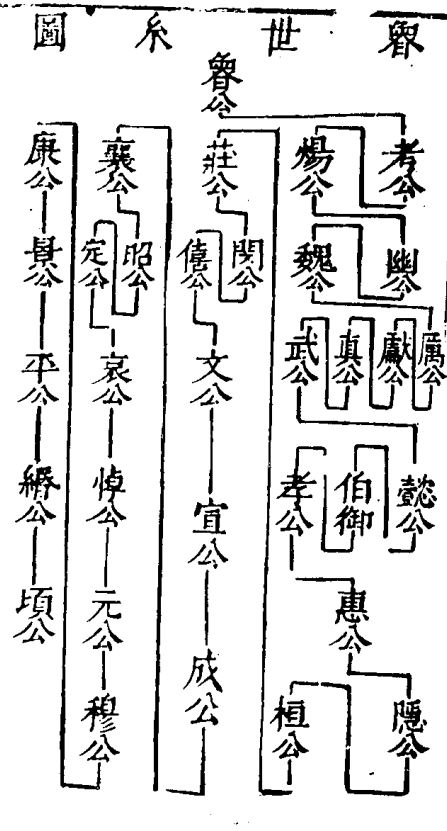 魯世系圖
魯公
考公
煬公
幽公
魏公
厲公
獻公
真公
武公
懿公
伯御
孝公
惠公
隱公
桓公
莊公
閔公
僖公
文公
宣公
成公
襄公
昭公
定公
哀公
悼公
元公
穆公
康公
景公
平公
緡公
頃公